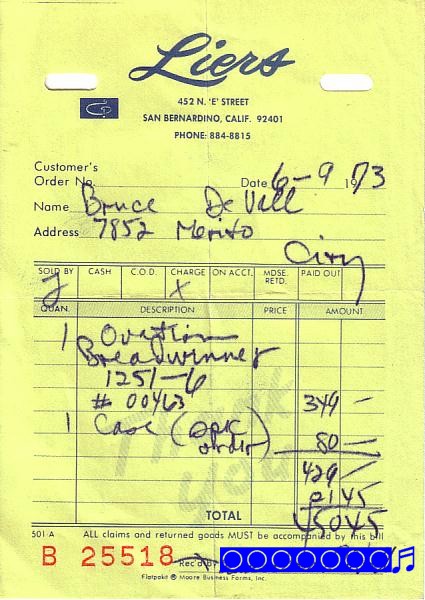 Liers
452 N. 'E' STREET
SAN BERNARDINO, CALIF. 92401
PHONE: 884-8815
Customer's
Order No. Date 6-9 1973
Name Bruce DeVall
Address 7852 Merito
City
SOLD BY CASH C.O.D. CHARGE ON ACCT. MDSE. RETD. PAID OUT
J X
QUAN. DESCRIPTION PRICE AMOUNT
1 Ovation
Breadwinner
1251-6
# 00463 349 —
1 Case (spec order) 80 —
THANK YOU
429 —
2145
TOTAL 45045
501-A ALL claims and returned goods MUST be accompanied by this bill
B 25518 Rec'd by
Flatpakit ® Moore Business Forms, Inc.